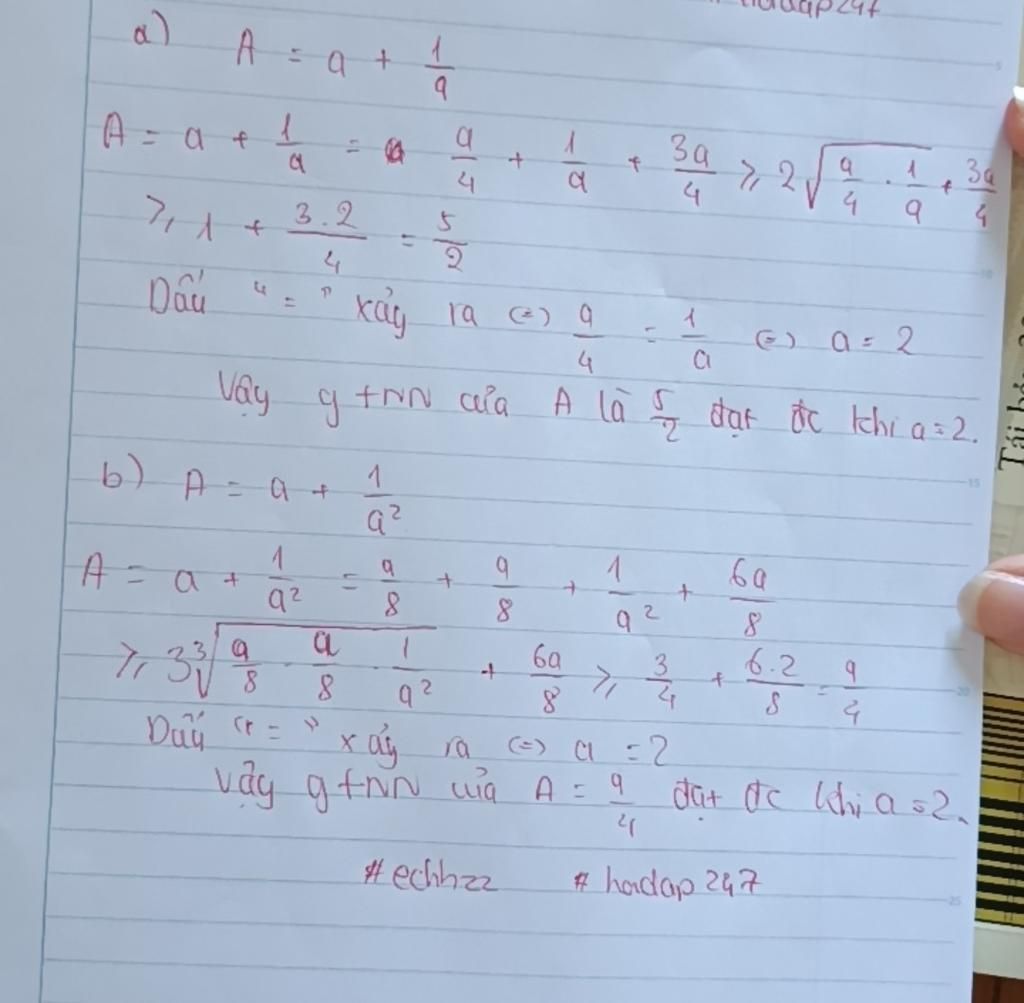 hadap247
a) A = a + 1/a
A = a + 1/a = a/4 + 1/a + 3a/4 ≥ 2√(a/4 . 1/a) + 3a/4
≥ 1 + 3.2/4 = 5/2
Dấu "=" xảy ra (=) a/4 = 1/a (=) a = 2
Vậy gtNN của A là 5/2 đạt đc khi a = 2.
b) A = a + 1/a²
A = a + 1/a² = a/8 + a/8 + 1/a² + 6a/8
≥ 3∛(a/8 . a/8 . 1/a²) + 6a/8 ≥ 3/4 + 6.2/8 = 9/4
Dấu "=" xảy ra (=) a = 2
Vậy gtNN của A = 9/4 đạt đc khi a = 2.
#echhzz #hadap247